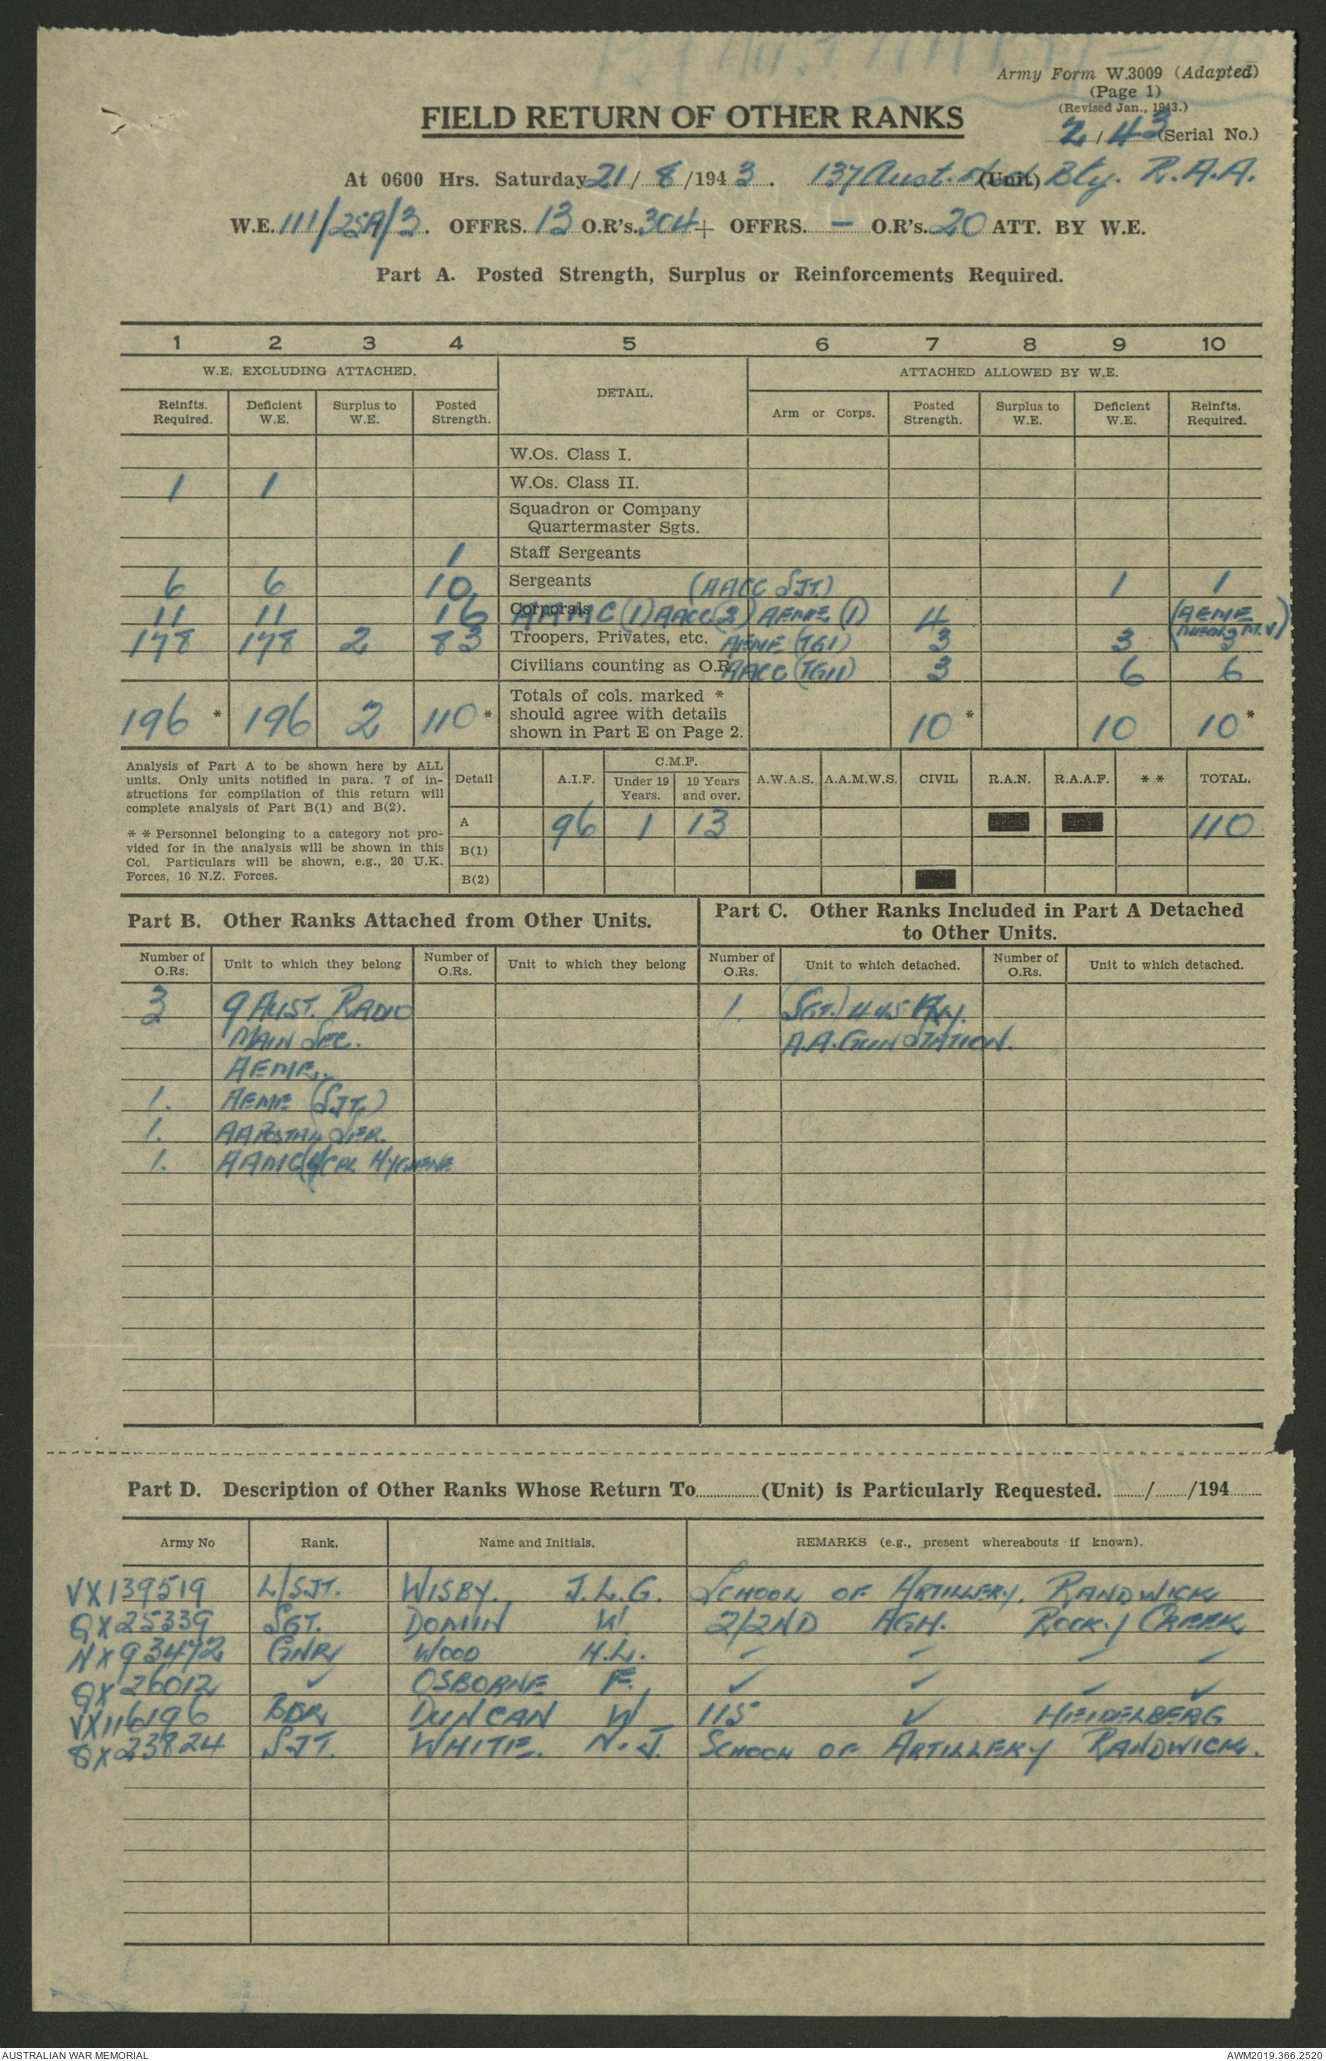 Army Form W.3009 (Adapted)
(Page 1)
(Revised Jan., 1943.)
FIELD RETURN OF OTHER RANKS
2/43 (Serial No.)
At 0600 Hrs. Saturday 21/8/1943. 137 Aust. (Unit) Bty. R.A.A.
W.E. 111/25A/3. OFFRS. 13 O.R's. 304+ OFFRS. — O.R's. 20 ATT. BY W.E.
Part A. Posted Strength, Surplus or Reinforcements Required.
1 2 3 4 5 6 7 8 9 10
W.E. EXCLUDING ATTACHED. DETAIL. ATTACHED ALLOWED BY W.E.
Reinfts. Required. Deficient W.E. Surplus to W.E. Posted Strength. Arm or Corps. Posted Strength. Surplus to W.E. Deficient W.E. Reinfts. Required.
W.Os. Class I.
1 1 W.Os. Class II.
Squadron or Company
Quartermaster Sgts.
1 Staff Sergeants
6 6 10 Sergeants (AACC SJT.) 1 1
11 11 16 Corporals AAMC (1) AACC (2) AEME (1) 4 (AEME
178 178 2 83 Troopers, Privates, etc. AEME (TG1) 3 3 3
Civilians counting as O.R. AACC (TG11) 3 6 6
Totals of cols. marked *
should agree with details
shown in Part E on Page 2.
196 * 196 2 110 * 10 * 10 10 *
Analysis of Part A to be shown here by ALL
units. Only units notified in para. 7 of in-
structions for compilation of this return will
complete analysis of Part B(1) and B(2).
* * Personnel belonging to a category not pro-
vided for in the analysis will be shown in this
Col. Particulars will be shown, e.g., 20 U.K.
Forces, 16 N.Z. Forces.
Detail A.I.F. C.M.F. Under 19 Years. 19 Years and over. A.W.A.S. A.A.M.W.S. CIVIL R.A.N. R.A.A.F. * * TOTAL.
A 96 1 13 110
B(1)
B(2)
Part B. Other Ranks Attached from Other Units.
Part C. Other Ranks Included in Part A Detached
to Other Units.
Number of O.Rs. Unit to which they belong Number of O.Rs. Unit to which they belong Number of O.Rs. Unit to which detached. Number of O.Rs. Unit to which detached.
3 9 AUST. RADIO 1. (SGT.) 445
MAIN SEC. A.A. GUN STATION.
AEME.
1. AEME (SJT.)
1. AAPOSTAL SER.
1. AAMC CPL HYGIENE
Part D. Description of Other Ranks Whose Return To (Unit) is Particularly Requested. / /194
Army No Rank. Name and Initials. REMARKS (e.g., present whereabouts if known).
VX139519 L/SJT. WISBY. J.L.G. SCHOOL OF ARTILLERY, RANDWICK
QX25339 SGT. DOMIN W. 2/2ND AGH. ROCKY CREEK
NX93472 GNR WOOD H.L. ✓ ✓ ✓ ✓
QX26012 ✓ OSBORNE F. ✓ ✓ ✓ ✓
VX116196 BDR DUNCAN W 115 ✓ HEIDELBERG
QX23824 SJT. WHITE. N.J. SCHOOL OF ARTILLERY RANDWICK.
AUSTRALIAN WAR MEMORIAL AWM2019.366.2520